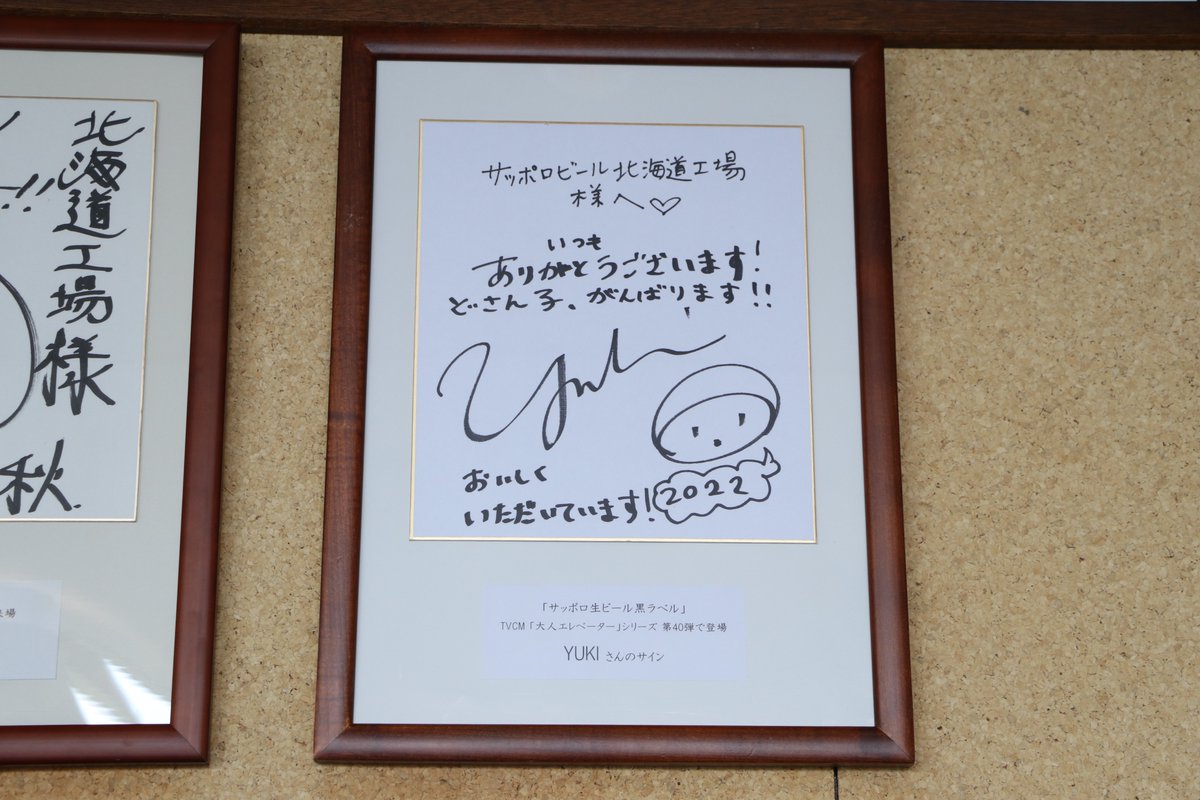 北海道工場様
!!
秋
場
サッポロビール北海道工場
様へ♡
いつも
ありがとうございます!
どさん子、がんばります!!
Yuki
おいしく
いただいています!
2022
「サッポロ生ビール黒ラベル」
TVCM「大人エレベーター」シリーズ 第40弾で登場
YUKI さんのサイン